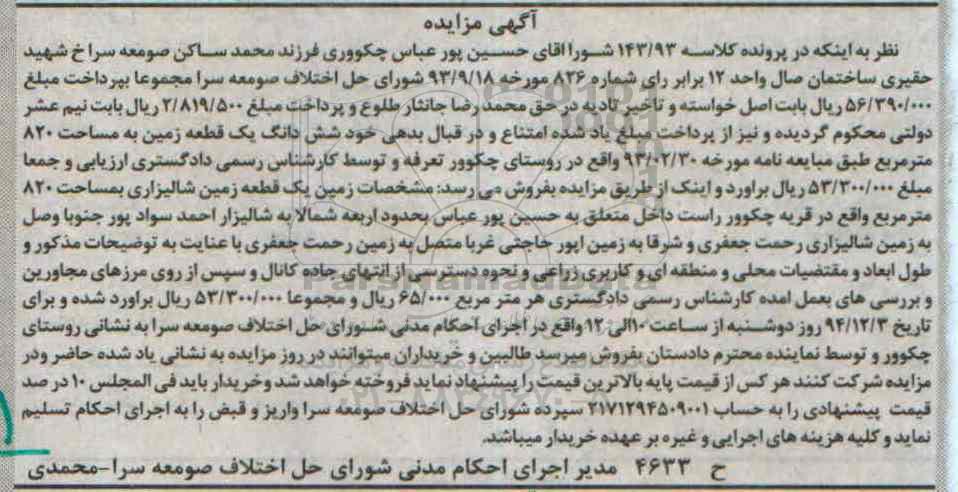 آگهی مزایده
نظر به اینکه در پرونده کلاسه ۱۴۳/۹۳ شورا اقای حسین پور عباس چکووری فرزند محمد ساکن صومعه سرا خ شهید
حقیری ساختمان صال واحد ۱۲ برابر رای شماره ۸۲۶ مورخه ۹۳/۹/۱۸ شورای حل اختلاف صومعه سرا مجموعا بپرداخت مبلغ
۵۶/۳۹۰/۰۰۰ ریال بابت اصل خواسته و تاخیر تادیه در حق محمد رضا جانثار طلوع و پرداخت مبلغ ۲/۸۱۹/۵۰۰ ریال بابت نیم عشر
دولتی محکوم گردیده و نیز از پرداخت مبلغ یاد شده امتناع و در قبال بدهی خود شش دانگ یک قطعه زمین به مساحت ۸۲۰
مترمربع طبق مبایعه نامه مورخه ۹۳/۰۲/۳۰ واقع در روستای چکوور تعرفه و توسط کارشناس رسمی دادگستری ارزیابی و جمعا
مبلغ ۵۳/۳۰۰/۰۰۰ ریال براورد و اینک از طریق مزایده بفروش می رسد: مشخصات زمین یک قطعه زمین شالیزاری بمساحت ۸۲۰
مترمربع واقع در قریه چکوور راست داخل متعلق به حسین پور عباس بحدود اربعه شمالا به شالیزار احمد سواد پور جنوبا وصل
به زمین شالیزاری رحمت جعفری و شرقا به زمین اپور حاجتی غربا متصل به زمین رحمت جعفری با عنایت به توضیحات مذکور و
طول ابعاد و مقتضیات محلی و منطقه ای و کاربری زراعی و نحوه دسترسی از انتهای جاده کانال و سپس از روی مرزهای مجاورین
و بررسی های بعمل امده کارشناس رسمی دادگستری هر متر مربع ۶۵/۰۰۰ ریال و مجموعا ۵۳/۳۰۰/۰۰۰ ریال براورد شده و برای
تاریخ ۹۴/۱۲/۳ روز دوشنبه از ساعت ۱۰الی۱۲ واقع در اجرای احکام مدنی شورای حل اختلاف صومعه سرا به نشانی روستای
چکوور و توسط نماینده محترم دادستان بفروش میرسد طالبین و خریداران میتوانند در روز مزایده به نشانی یاد شده حاضر ودر
مزایده شرکت کنند هر کس از قیمت پایه بالاترین قیمت را پیشنهاد نماید فروخته خواهد شد وخریدار باید فی المجلس ۱۰ در صد
قیمت پیشنهادی را به حساب ۲۱۷۱۲۹۴۵۰۹۰۰۱ سپرده شورای حل اختلاف صومعه سرا واریز و قبض را به اجرای احکام تسلیم
نماید و کلیه هزینه های اجرایی و غیره بر عهده خریدار میباشد.
ح ۴۶۳۳ مدیر اجرای احکام مدنی شورای حل اختلاف صومعه سرا-محمدی
ParsNamadData